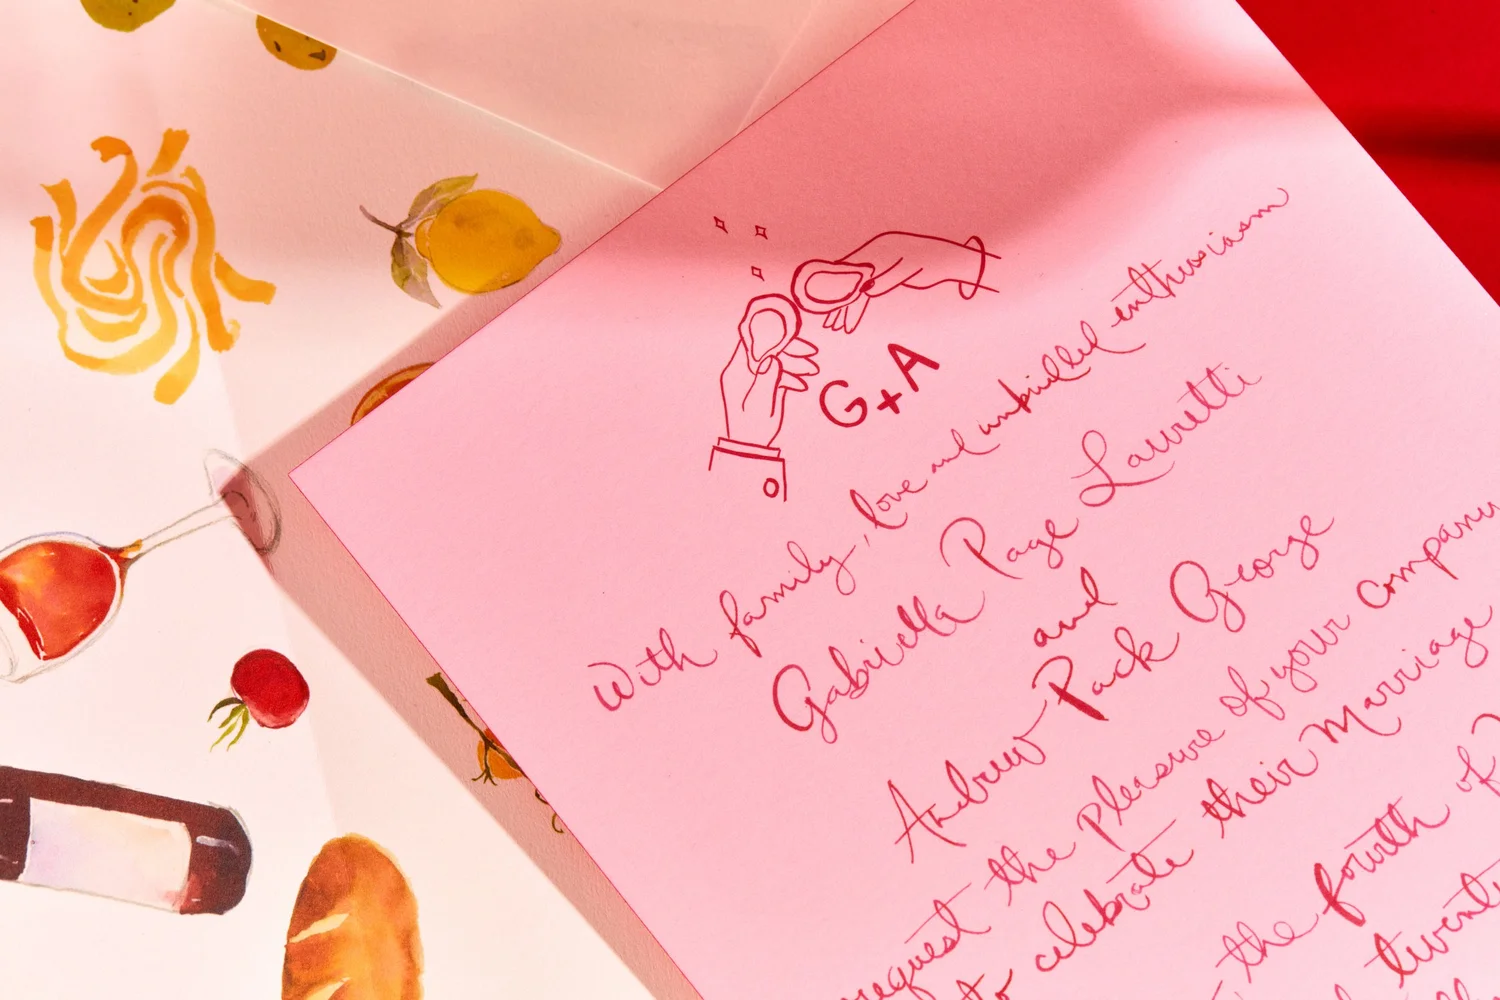 G+A
With family, love and unbridled enthusiasm
Gabriella Page Lauretti
and
Andrew Pack George
request the pleasure of your company
to celebrate their Marriage
the fourth of